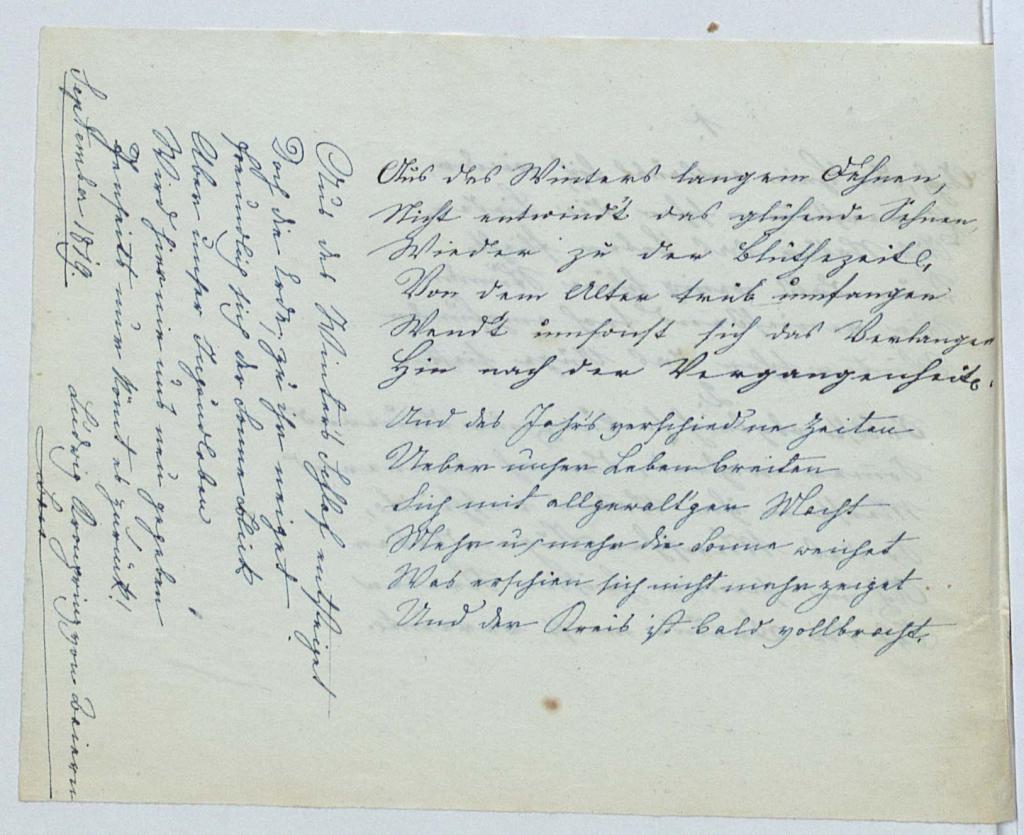 Aus des Winters langem Dehnen,
Nicht entwindt das glühende Sehnen,
Wieder zu der Blüthezeit,
Von dem Alter trüb umfangen
Wendt umsonst sich das Verlangen
Hin nach der Vergangenheit.
Und des Jahrs verschied'ne Zeiten
Ueber unser Leben breiten
Sich mit allgewalt'ger Macht
Mehr u mehr die Sonne weichet
Was erschien sich nicht mehr zeiget
Und der Kreis ist bald vollbracht.
Aus des Winters Schlaf entsteiget
Doch die Erde, zu ihr neiget
Freundlich sich der Sonne Blick
Aber unser Jugendleben
Wird hier nie uns neu gegeben
Jenseits nur kömt es zurück!
September 1819.
Ludwig Kronprinz von Baiern